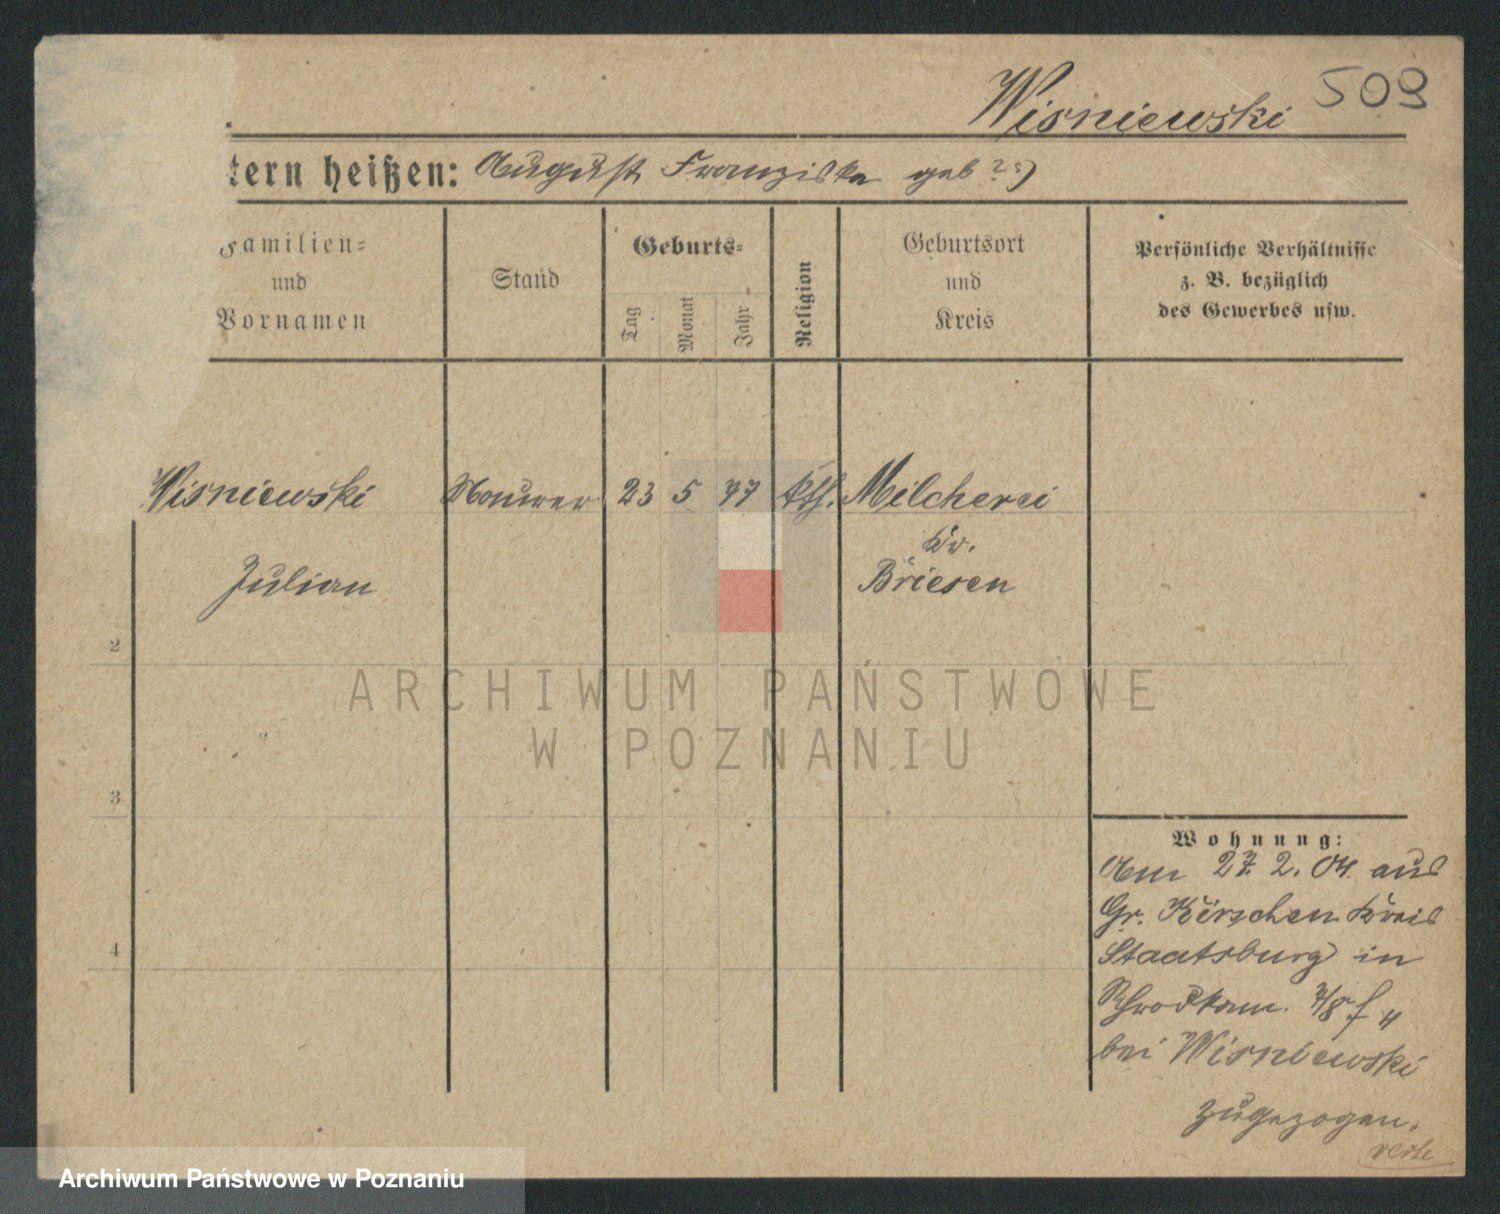 Wisniewski 509
tern heißen: August Franziska geb ?s)
Familien-
und
Vornamen
Stand
Geburts-
Tag
Monat
Jahr
Religion
Geburtsort
und
Kreis
Persönliche Verhältnisse
z. B. bezüglich
des Gewerbes usw.
Wisniewski Maurer 23 5 77 kth. Milcherei
Kr.
Julian Briesen
2
3
4
Wohnung:
Am 27. 2. 04. aus
Gr. Kirschen Kreis
Staatsburg in
bei Wisniewski
zugezogen.
verte
ARCHIWUM PAŃSTWOWE
W POZNANIU
Archiwum Państwowe w Poznaniu